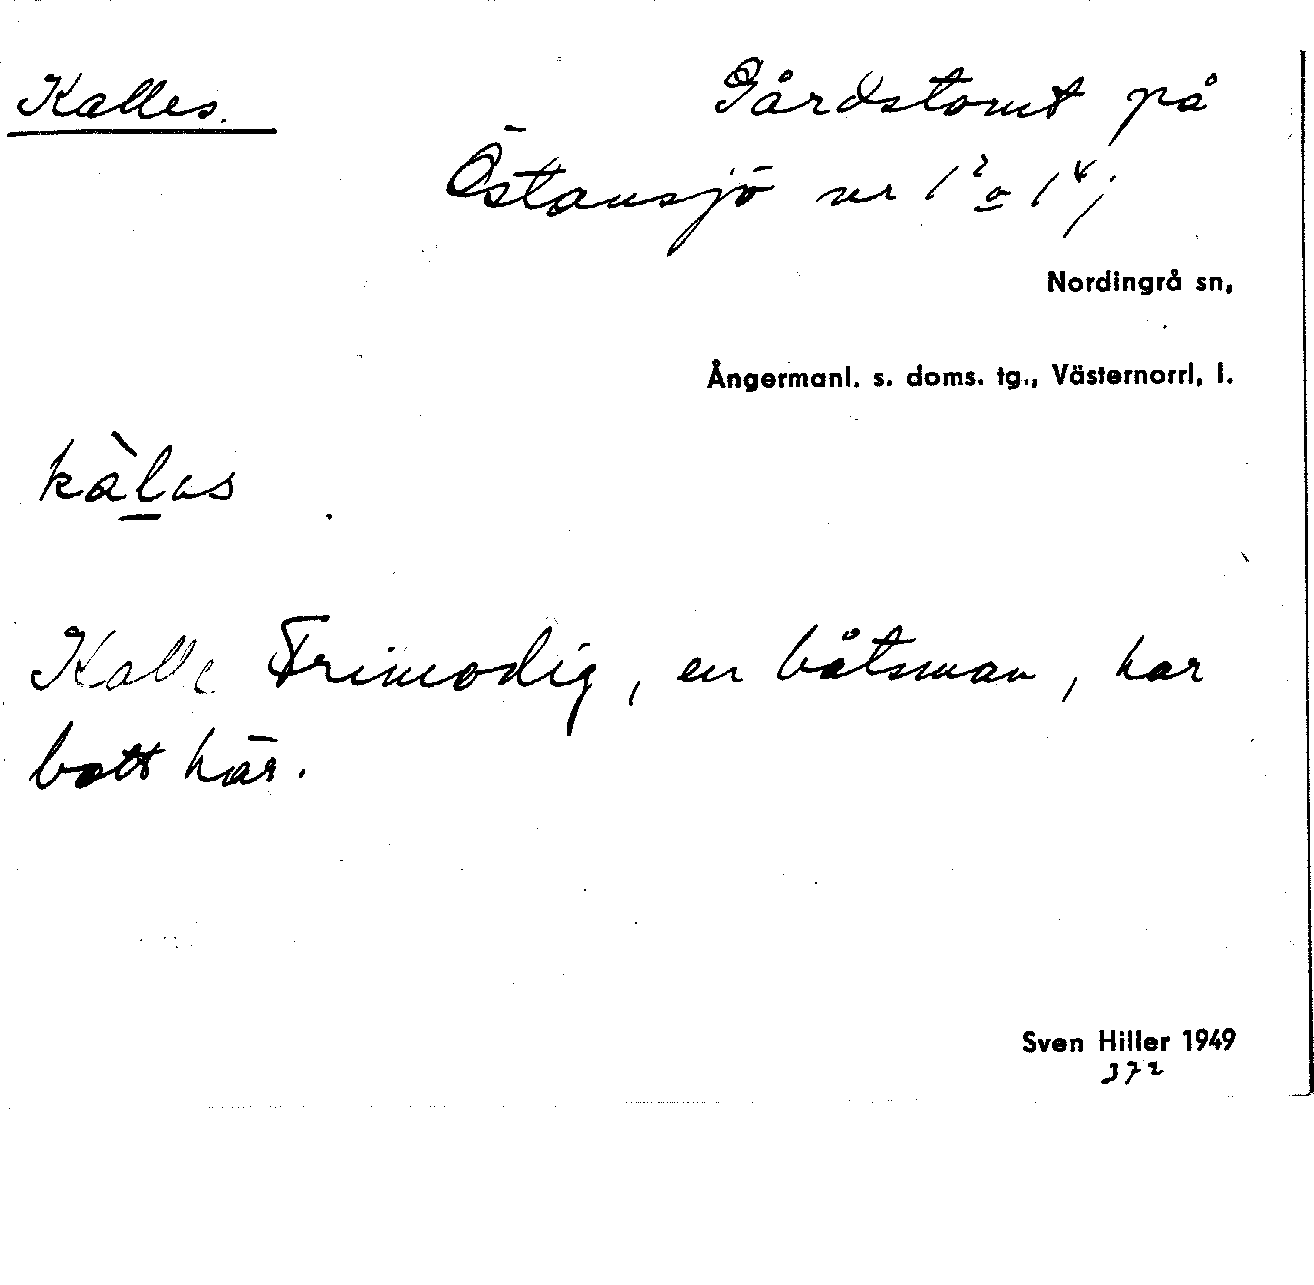 Kalles.
Gårdstomt på
Östansjö nr 1² o 1⁴;
Nordingrå sn,
Ångermanl. s. doms. tg., Västernorrl. l.
kàl̲as
Kalle Frimodig, en båtsman, har
bott här.
Sven Hiller 1949
372